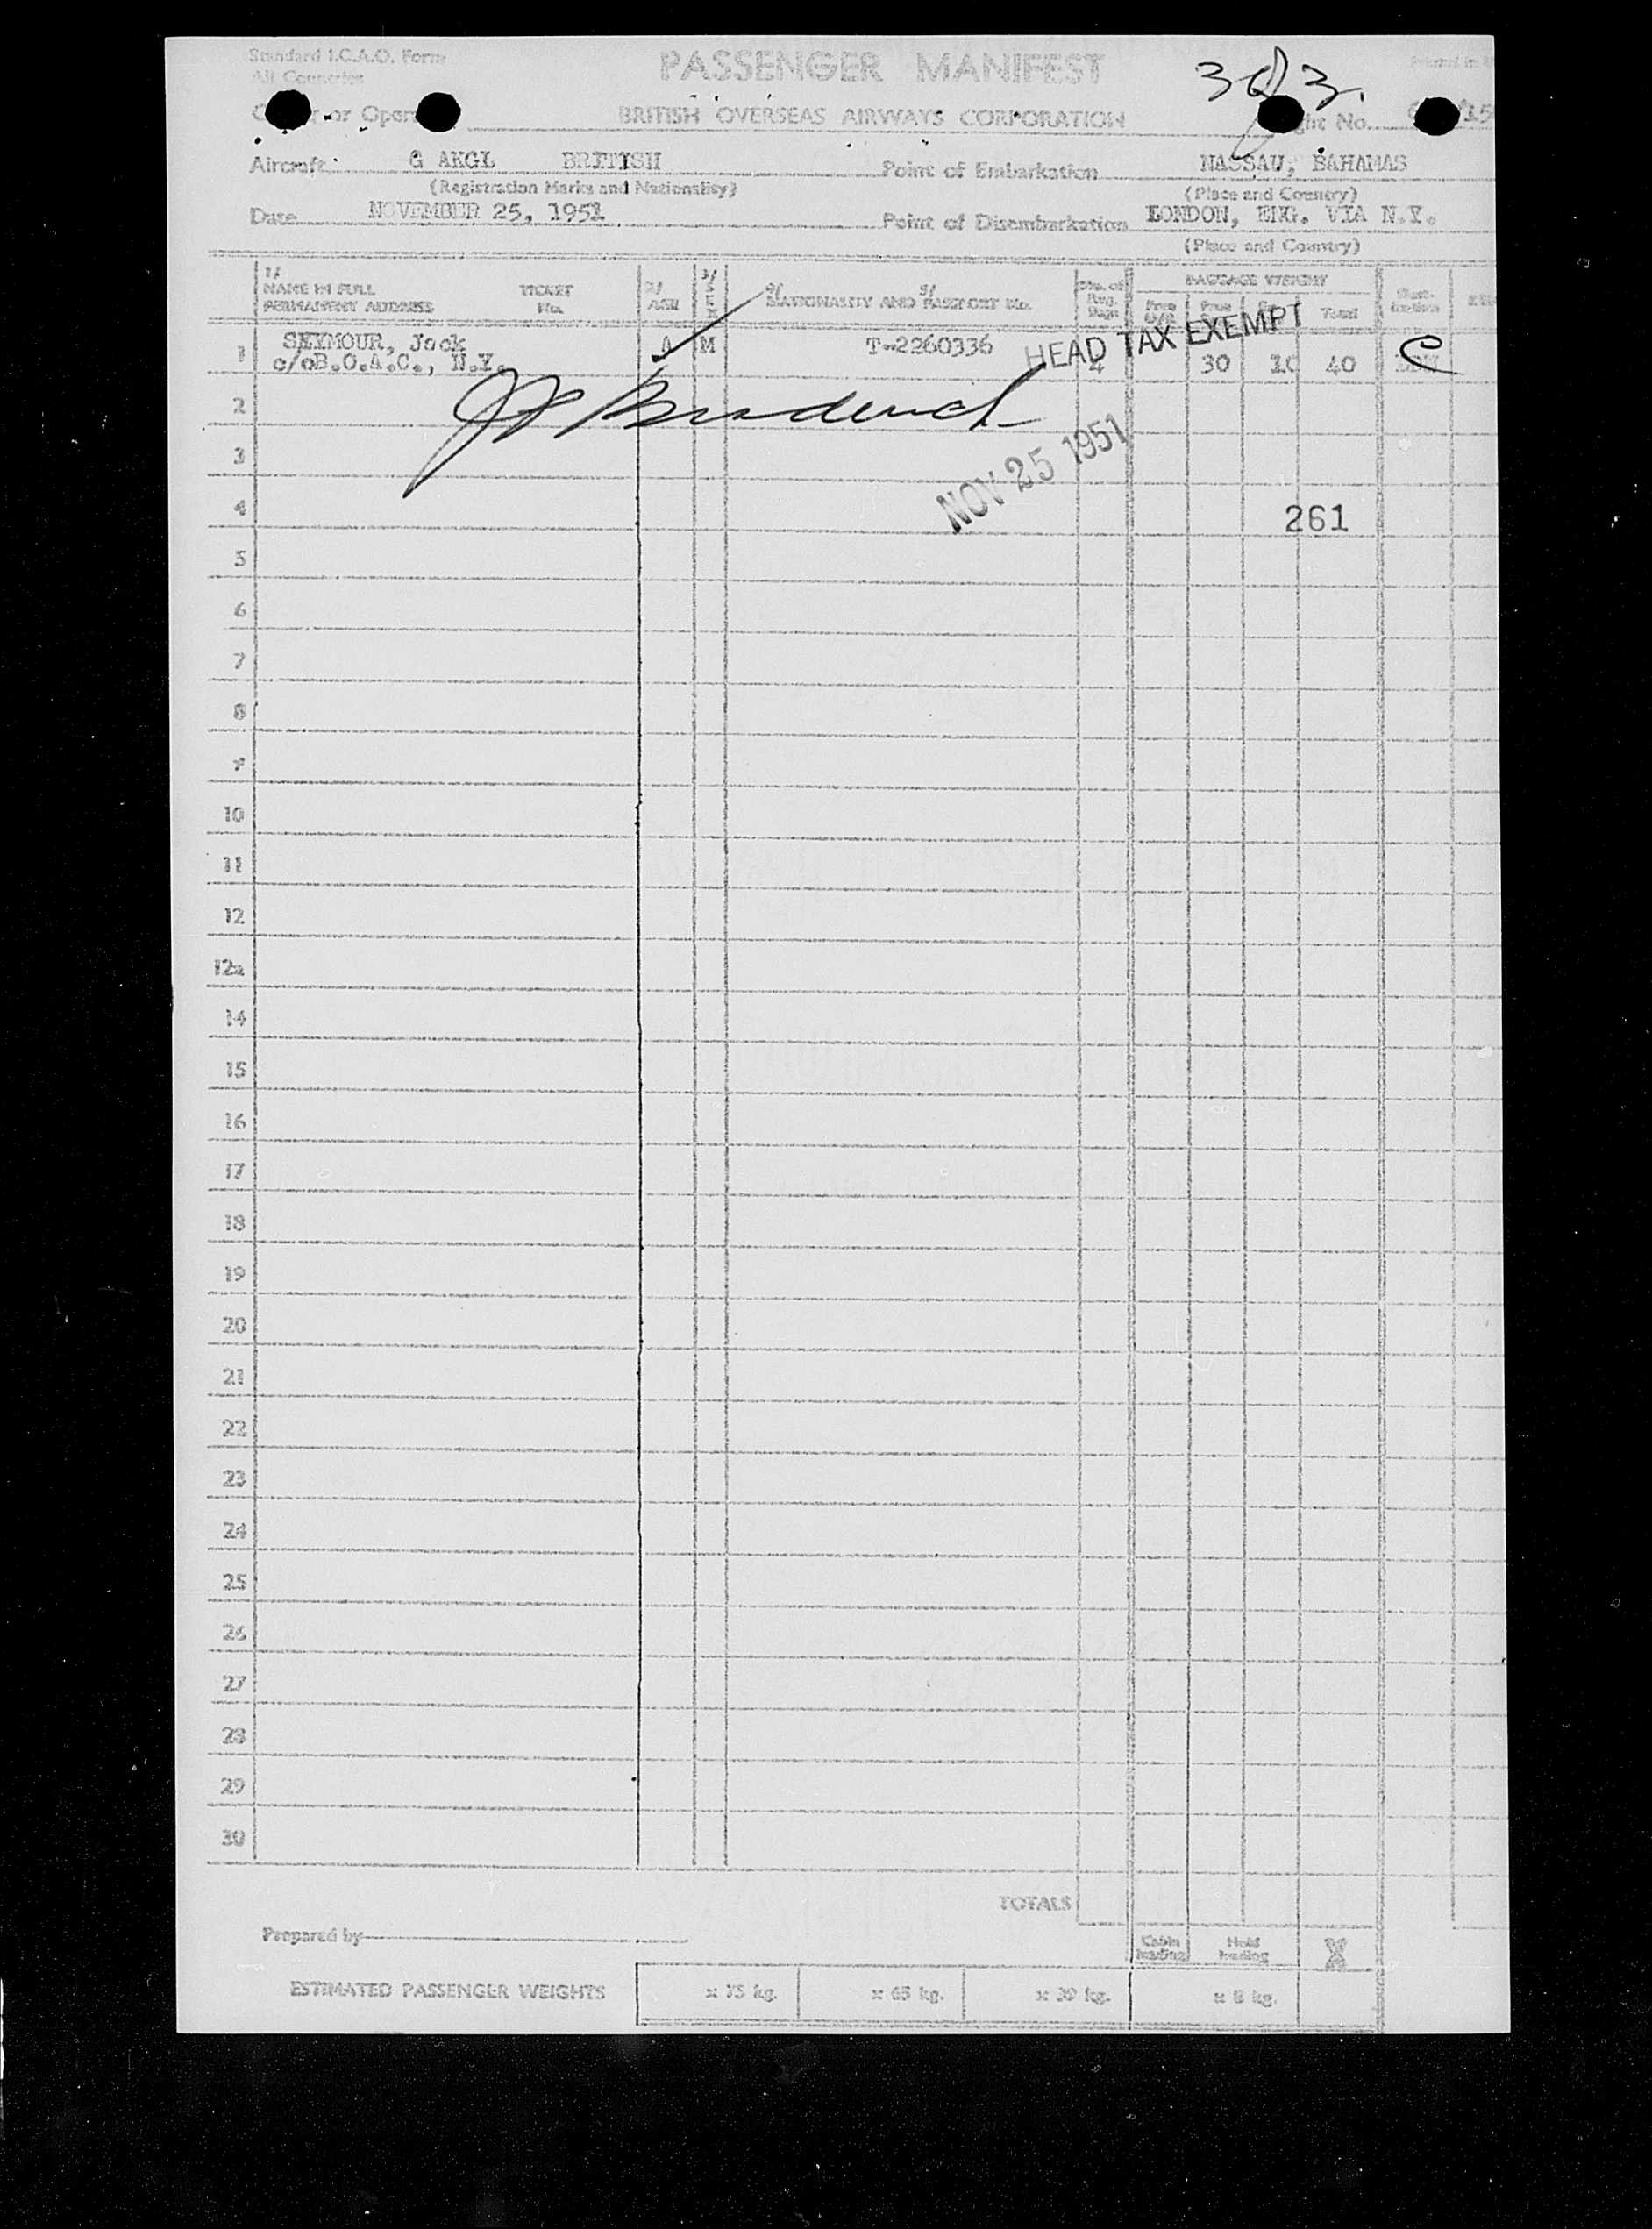 Standard I.C.A.O. Form
All Countries
PASSENGER MANIFEST
3 of 3.
Printed in
or Oper
BRITISH OVERSEAS AIRWAYS CORPORATION
ght No.
Aircraft G AKGL BRITISH
Point of Embarkation NASSAU, BAHAMAS
(Registration Marks and Nationality)
(Place and Country)
Date NOVEMBER 25, 1951
Point of Disembarkation LONDON, ENG. VIA N.Y.
(Place and Country)
1/ NAME IN FULL PERMANENT ADDRESS
TICKET No.
2/ AGE
3/ SEX
4/ 5/
NATIONALITY AND PASSPORT No.
No. of
BAGGAGE WEIGHT
Free
Free
Total
1 SEYMOUR, Jack A M T-2260336 4 30 10 40 LON C
c/oB.O.A.C., N.Y.
HEAD TAX EXEMPT
2
3
NOV 25 1951
4
261
5
6
7
8
9
10
11
12
12a
14
15
16
17
18
19
20
21
22
23
24
25
26
27
28
29
30
TOTALS
Prepared by
Cabin loading
Hold loading
ESTIMATED PASSENGER WEIGHTS
x 75 kg.
x 65 kg.
x 39 kg.
x 8 kg.